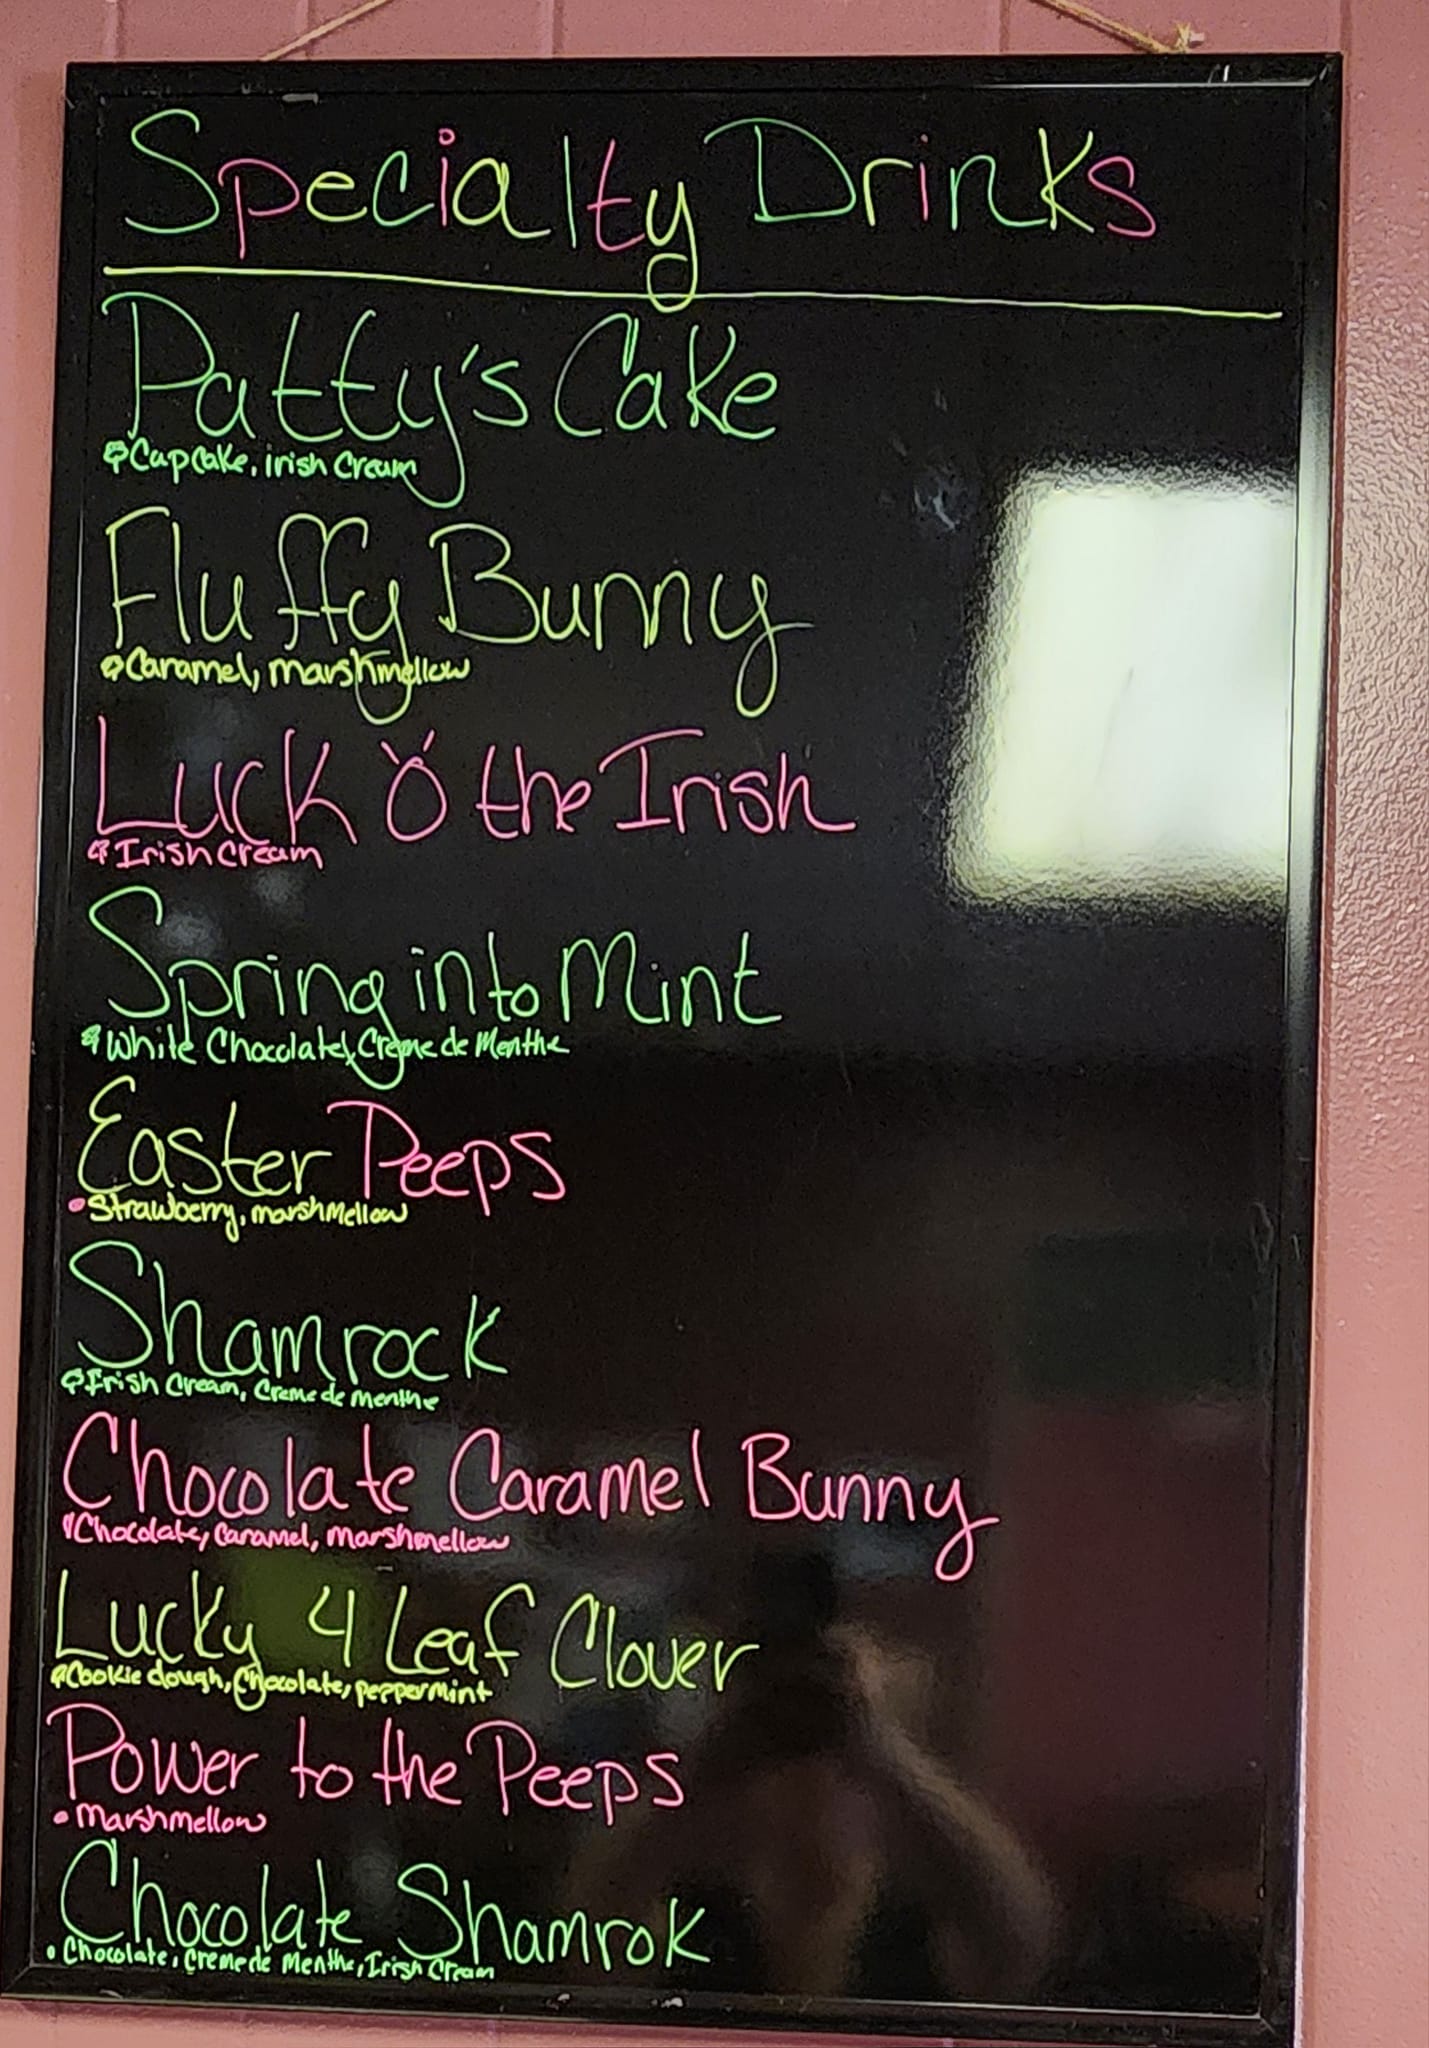 Specialty Drinks
Patty's Cake
Cupcake, irish Cream
Fluffy Bunny
Caramel, marshmellow
Luck O' the Irish
Irish Cream
Spring into Mint
White Chocolate, Creme de Menthe
Easter Peeps
Strawberry, marshmellow
Shamrock
Irish Cream, Creme de menthe
Chocolate Caramel Bunny
Chocolate, Caramel, marshmellow
Lucky 4 Leaf Clover
Cookie dough, Chocolate, peppermint
Power to the Peeps
Marshmellow
Chocolate Shamrok
Chocolate, Creme de Menthe, Irish Cream